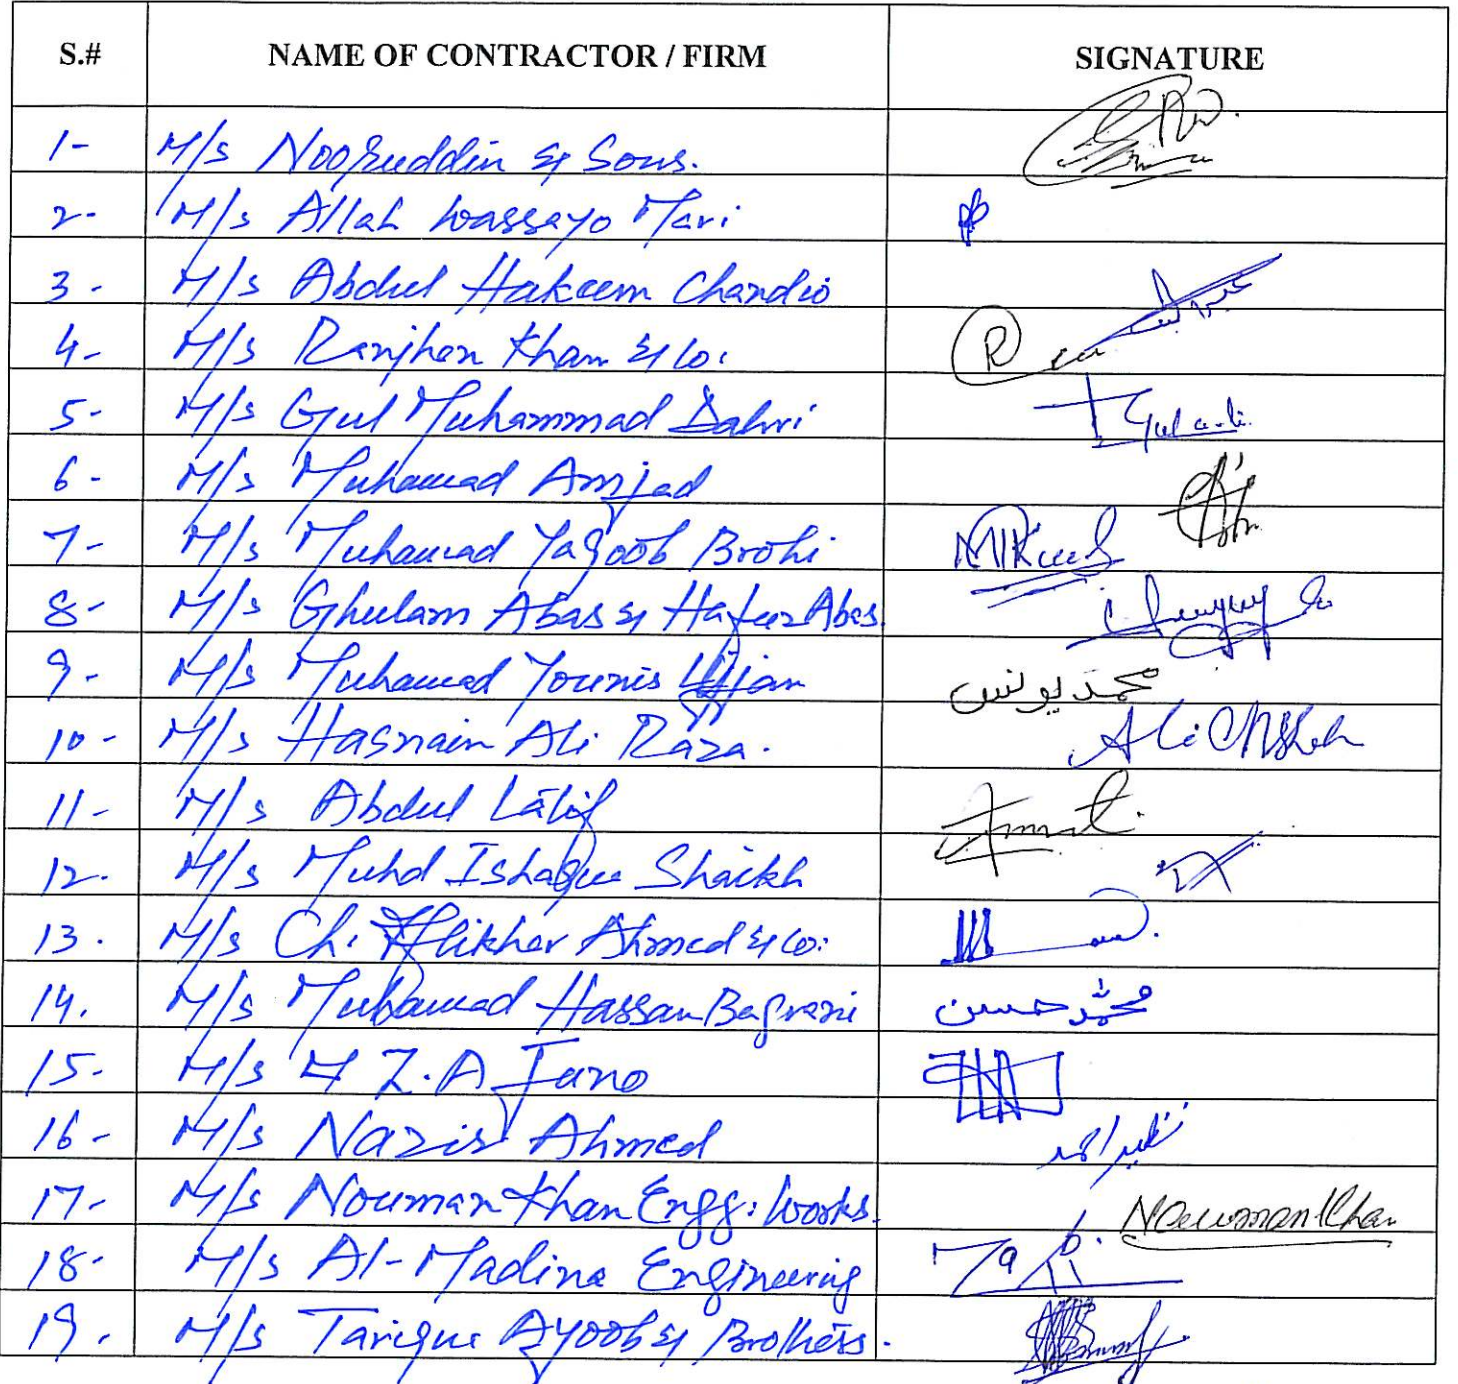 S.# NAME OF CONTRACTOR / FIRM SIGNATURE
1- M/s Nooruddin & Sons.
2- M/s Allah Wassayo Mari
3- M/s Abdul Hakeem Chandio
4- M/s Ranjhan Khan & Co:
5- M/s Gul Muhammad Dahri
6- M/s Muhamad Amjad
7- M/s Muhamad Yaqoob Brohi
8- M/s Ghulam Abas & Hafeez Abas
9- M/s Muhamad Younis Ujjan محمد یونس
10- M/s Hasnain Ali Raza.
11- M/s Abdul Latif
12. M/s Muhd Ishaque Shaikh
13. M/s Ch. Iftikhar Ahmed & Co:
14. M/s Muhamad Hassan محمد حسن
15- M/s M Z.A Juno
16- M/s Nazir Ahmed نظیر احمد
17- M/s Nouman Khan Engg: Works. Nouman Khan
18- M/s Al-Madina Engineering
19. M/s Tarique Ayoob & Brothers.